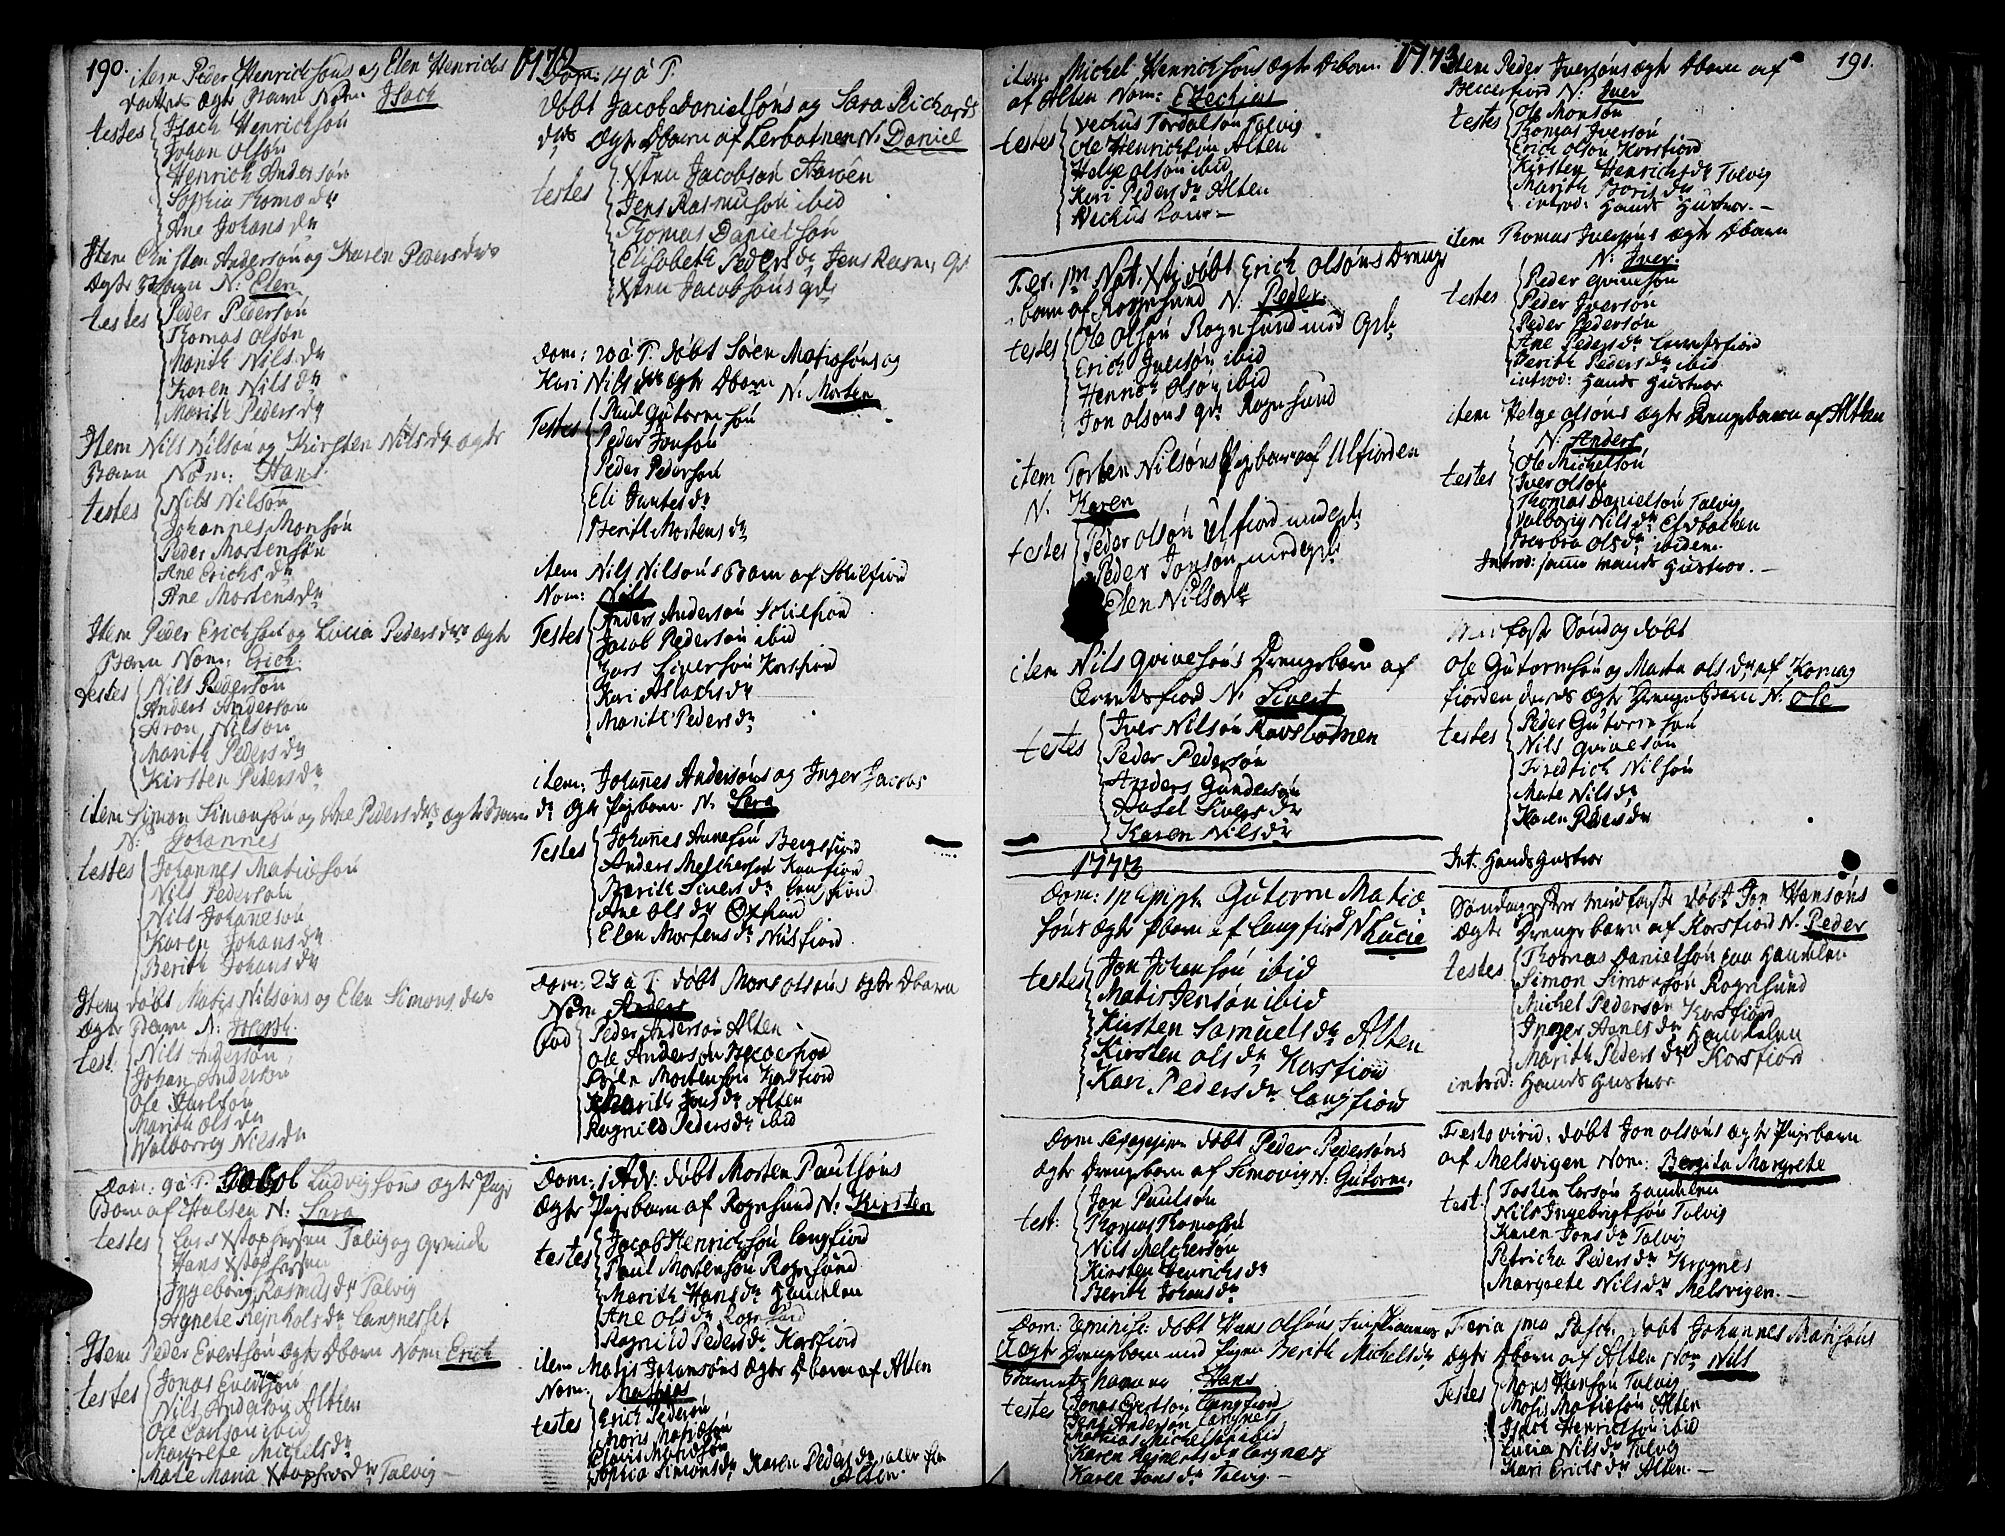 190.
1772
item Peder Henrichsøns og Elen Henrichs
datters ægte Barn Nom: Isach
testes Isach Henrichsøn
Johan Olsøn
Henrich Andersøn
Sophia Thomæ dtr
Ane Johans dtr
Item Christen Andersøn og Karen Peders dtrs
ægte Barn N: Elen
testes Peder Pedersøn
Thomas Olsøn
Marith Nils dtr
Karen Nils dtr
Marith Peders dtr
Item Nils Nilsøn og Kirsten Nils dtr ægte
Barn Nom: Hans
testes Nils Nilsøn
Johannes Monsøn
Peder Mortensøn
Ane Erichs dtr
Ane Mortens dtr
Item Peder Erichsøn og Lucia Peders dtrs ægte
Barn Nom: Erich
testes Nils Pedersøn
Anders Andersøn
Aron Nilsøn
Marith Peders dtr
Kirsten Peders dtr
item Simon Simonsøn og Ane Peders dtrs ægte Barn
N: Johannes
testes Johannes Matiesøn
Nils Pedersøn
Nils Johannesøn
Karen Johans dtr
Berith Johans dtr
Item døbt Matis Nilsøns og Elen Simons dtrs
ægte Barn N: Joseph
test. Nils Andersøn
Johan Andersøn
Ole Karlsøn
Marith Ols dtr
Walborrig Nils dtr
Dom: 9 à T. Jacob Ludvigsøns ægte Pige
Barn af Halten N: Sara
testes Lars Xstophersen Talvig og Qvinde
Hans Xstophersen
Ingeborg Rasmus dtr Talvig
Agnete Reinhols dtr Langneset
Item Peder Evertsøn ægte Dbarn Nom: Erich
testes Jonas Evertsøn
Nils Andersøn Alten
Ole Larsøn ibid
Margrete Michels dtr
Mare Maria Xstophers dtr Talvig
Dom: 14 à T.
døbt Jacob Danielsøns og Sara Richards
dtrs ægte Dbarn af Lerbotnen N: Daniel
testes Xsten Jacobsøn Aarøen
Jens Rasmusøn ibid
Thomas Danielsøn
Elisabeth Peders dtr Jens Rasm: Qv.
Xsten Jacobsøns qvi
Dom: 20 à T. døbt Søren Matiesøns og
Kari Nils dtrs ægte Dbarn N: Morten
Testes Paul Gutormsøn
Peder Jonsøn
Peder Pedersøn
Eli Jantes dtr
Berith Mortens dtr
item Nils Nilsøns Barn af Stilfiord
Nom: Nils
Testes Anders Andersøn Stilfiord
Jacob Pedersøn ibid
Lars Siversøn Korsfiord
Kari Aslachs dtr
Marith Peders dtr
item: Johannes Andersøns og Inger Jacobs
dtr ægte Pigebarn N. Sara
Testes Johannes Arnesøn Bergsfiord
Anders Melchersøn Kaafiord
Berith Sivers dtr Langfiord
Ane Ols dtr Øxsund
Elen Mortens dtr Nusfiord
Dom: 23 à T. døbt Mons Olsøns ægte Dbarn
Nom: Anders
Fad Peder Andersøn Alten
Ole Andersøn Beccerfior
Søren Mortensøn Korsfiord
Marith Jons dtr Alten
Ragnild Peders dtr ibid
Dom: 1 Adv: døbt Morten Paulsøns
ægte Pigebarn af Rognsund N: Kirsten
testes Jacob Henrichsøn Langfiord
Paul Mortensøn Rognsund
Marith Hans dtr Handelen
Ane Ols dtr Rognsund
Ragnild Peders dtr Korsfiord
item Matis Johansøns ægte Dbarn af Alten
Nom: Mathias
testes Erich Pedersøn
Mons Matisøn
Clavis Matisøn
Sophia Simons dtr Karen Peders dtr alle fra
Alten.
1773
191.
item Michel Henrichsøns ægte Dbarn
af Alten Nom: Ezechias
testes Vechus Tordalsøn Talvig
Ole Henrichsøn Alten
Helge Olsøn ibid
Kari Peders dtr Alten
Fer. 1m Nat. Xsti døbt Erich Olsøns Drenge
barn af Rognsund N. Peder
testes Ole Olsøn Rognsund med Qvi
Erich Iversøn ibid
Henrich Olsøn ibid
Jon Olsøns qvi Rognsund
item Torben Nilsøns Pigebarn af Ulfiorden
N. Karen
testes Peder Olsøn Ulfiord med qvi
Peder Jonsøn med qvi
Elen Nils dtr
item Nils Qvivesøns Drengebarn af
Qvenfiord N. Sivert
testes Iver Nilsøn Ravsbotnen
Peder Pedersøn
Anders Gundersøn
Aasel Sivers dtr
Karen Nils dtr
1773
Dom: 1 p Epiph. Gutorm Matie
søns ægte Pbarn af Langfiord N Lucie
testes Jon Johansøn ibid
Matis Jensøn ibid
Kirsten Samuels dtr Alten
Kirsten Ols dtr Korsfiord
Kari Peders dtr Langfiord
Dom Sexagesim døbt Peder Pedersøns
ægte Drengebarn af Simovig N: Gutorm,
test: Jon Paulsøn
Thomas Thomasøn
Nils Melchersøn
Kirsten Henrichs dtr
Berith Johans dtr
Dom: Reminisc: døbt Hans Olsøns
Uægte Drengebarn med Pigen Berith Michels dtr
Hans
testes Jonas Evertsøn Langfiord
Jens Andersøn Langnes
Mathias Michelsøn ibid
Karen Reinerts dtr Langnes
Karen Jons dtr Talvig
item Peder Iversøns ægte Dbarn af
Beccerfiord N. Iver
testes Ole Monsøn
Thomas Iversøn
Erich Olsøn Korsfiord
Kirsten Henrichs dtr Talvig
Marith Boris dtr
introd: Hands Hustroe.
item Thomas Iversøns ægte Dbarn
N: Iver
testes Peder Qvivesøn
Peder Iversøn
Peder Pedersøn
Ane Peders dtr
Berith Peders dtr ibid
introd: Hands Hustroe
item Helge Olsøns ægte Drengebarn af Alten
N: Anders
testes Ole Michelsøn
Iver Olsøn
Thomas Danielsøn Talvig
Valborig Nils dtr Elvebakken
Barbra Ols dtr ibidem
Introd: samme Mands Hustroe.
Midfaste Søndag døbt
Ole Gutormsøn og Marta Ols dtr af Komag
fiorden deres ægte Drengebarn N: Ole
testes Peder Gutormsøn
Nils Qvivesøn
Friedrich Nilsøn
Mare Nils dtr
Karen Peders dtr
Int. Hands Hustroe
Søndag efter Midfaste døbt Jon Hansøns
ægte Drengebarn af Korsfiord N: Peder
testes Thomas Danielsøn paa Handelen
Simon Simonsøn Rognsund
Michel Pedersøn Korsfiord
Inger Agnes dtr Handelen
Marith Peders dtr Korsfiord
introd: Hands Hustroe
Festo virid: døbt Jon Olsøns ægte Pigebarn
af Melsvigen Nom: Bergita Margrete
test: Tosten Larsøn Handelen
Nils Ingebrigtsøn Talvig
Karen Jons dtr Talvig
Petricha Peders dtr Krognes
Margrete Nils dtr Melsvigen.
Feria 1ma Pasch: døbt Johannes Matisøns
ægte Dbarn af Alten Nom Nils
Testes Mons Hansøn Talvig
Matis Matiesøn Alten
Isach Henrichsøn ibid
Lucia Nils dtr Talvig
Kari Erichs dtr Alten.